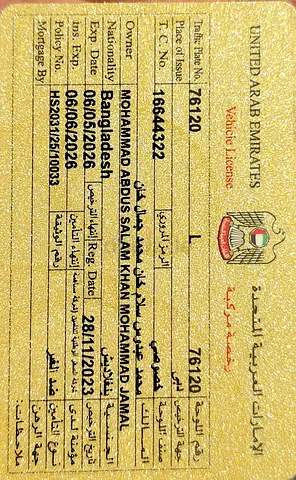 UNITED ARAB EMIRATES الإمارات العربية المتحدة
Vehicle License رخصة مركبة
Traffic Plate No. 76120 L 76120 رقم اللوحة
Place of Issue دبي جهة الترخيص
T. C. No. 16644322 الرمز المروري خصوصي صنف اللوحة
محمد عبدوس سلام خان محمد جمال خان المالك
Owner MOHAMMAD ABDUS SALAM KHAN MOHAMMAD JAMAL
Nationality Bangladesh بنغلاديش الجنسية
Exp. Date 06/05/2026 انتهاء الترخيص Reg. Date 28/11/2023 تاريخ الترخيص
Ins. Exp. 06/06/2026 انتهاء التأمين مؤمنة لدى
Policy No. HS2031/25/10033 رقم الوثيقة ضد الغير نوع التأمين
Mortgage By جهة الرهن
ملاحظات: